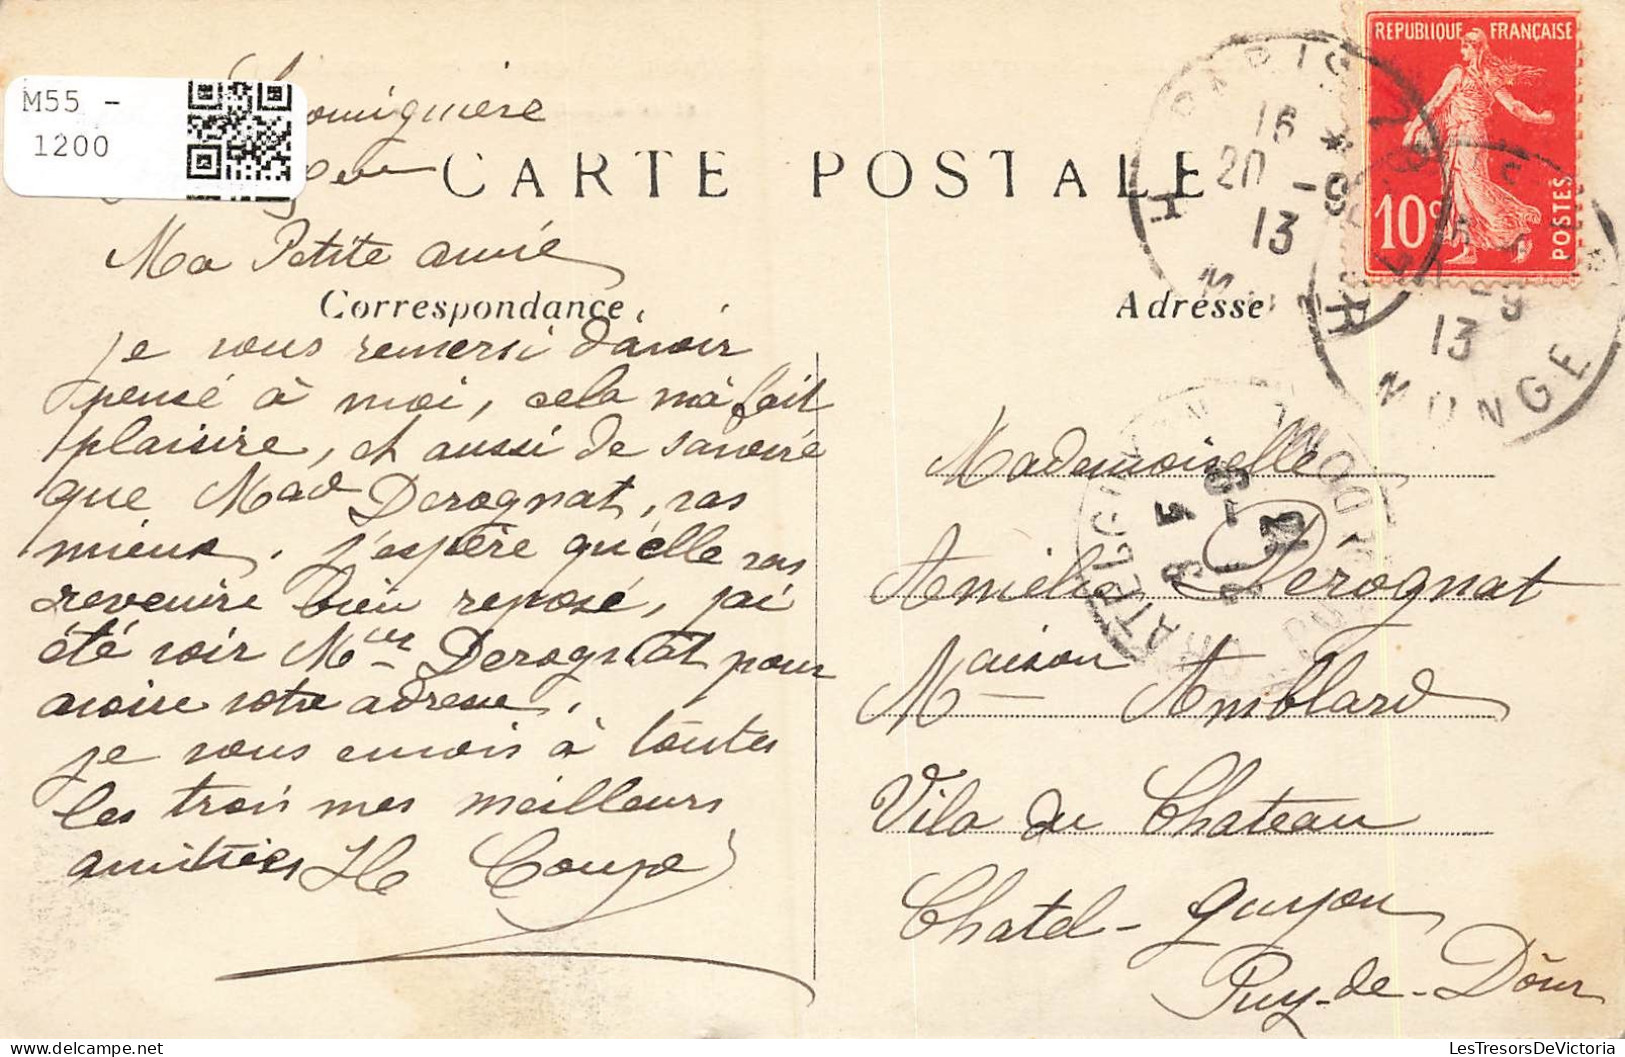 M55 -
1200
CARTE POSTALE
REPUBLIQUE FRANÇAISE
10c
POSTES
16 *
20 -9
13
13
MONGE
Ma Petite amie
Correspondance
Adresse
je vous remersi d'avoir
pensé à moi, cela m'a fait
plaisire, et aussi de savoire
que Mad Derognat, vas
mieux. j'espère qu'elle vas
revenire bien reposé, j'ai
été voir Mr Derognat pour
avoire votre adresse.
je vous envois à toutes
les trois mes meilleurs
amitiées H Couzé
Mademoiselle
Amélie Dérognat
Maison Amblard
Vila du Chateau
Chatel-Guyon
Puy-de-Dôm
CHATELGUYON
PUY DE DOME
LesTresorsDeVictoria